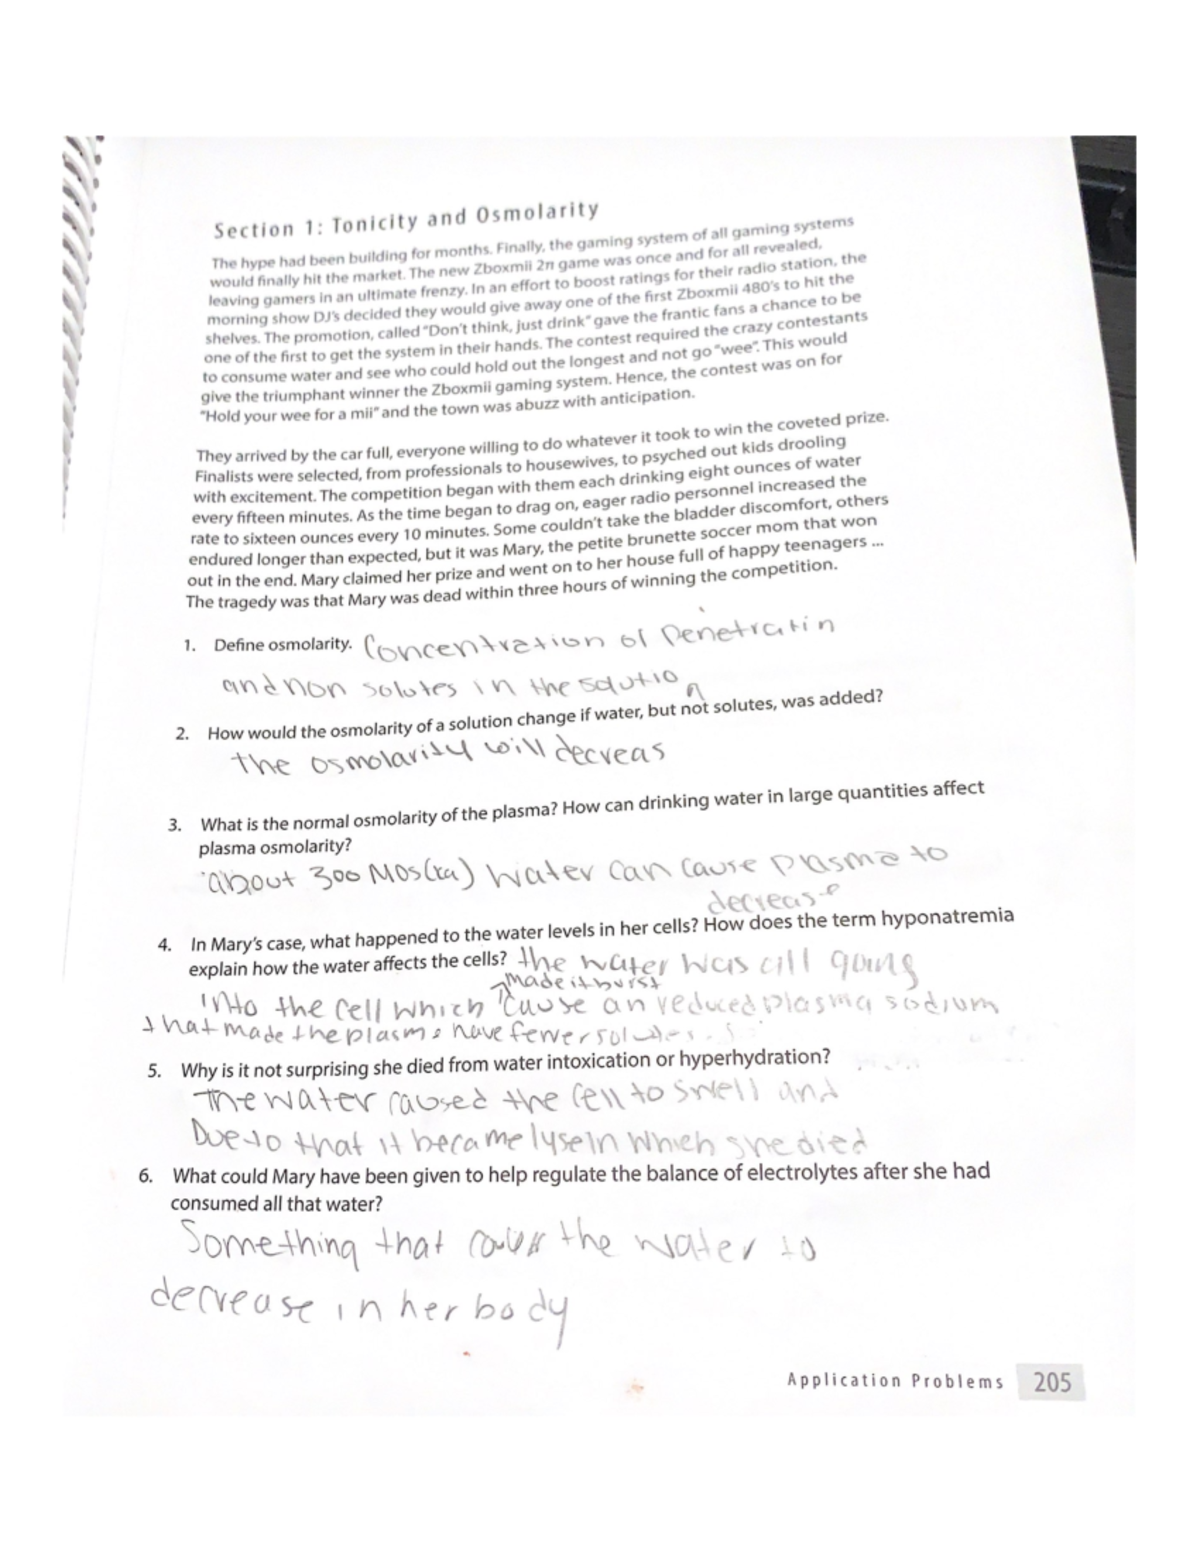 Section 1: Tonicity and Osmolarity
The hype had been building for months. Finally, the gaming system of all gaming systems
would finally hit the market. The new Zboxmii 2π game was once and for all revealed,
leaving gamers in an ultimate frenzy. In an effort to boost ratings for their radio station, the
morning show DJ's decided they would give away one of the first Zboxmii 480's to hit the
shelves. The promotion, called "Don't think, just drink" gave the frantic fans a chance to be
one of the first to get the system in their hands. The contest required the crazy contestants
to consume water and see who could hold out the longest and not go "wee". This would
give the triumphant winner the Zboxmii gaming system. Hence, the contest was on for
"Hold your wee for a mii" and the town was abuzz with anticipation.
They arrived by the car full, everyone willing to do whatever it took to win the coveted prize.
Finalists were selected, from professionals to housewives, to psyched out kids drooling
with excitement. The competition began with them each drinking eight ounces of water
every fifteen minutes. As the time began to drag on, eager radio personnel increased the
rate to sixteen ounces every 10 minutes. Some couldn't take the bladder discomfort, others
endured longer than expected, but it was Mary, the petite brunette soccer mom that won
out in the end. Mary claimed her prize and went on to her house full of happy teenagers ...
The tragedy was that Mary was dead within three hours of winning the competition.
1. Define osmolarity. Concentration of Penetratin
and non solutes in the solution
2. How would the osmolarity of a solution change if water, but not solutes, was added?
the osmolarity will decreas
3. What is the normal osmolarity of the plasma? How can drinking water in large quantities affect
plasma osmolarity?
about 300 MOs Water can cause plasma to
decrease
4. In Mary's case, what happened to the water levels in her cells? How does the term hyponatremia
explain how the water affects the cells? the water was all going
made it burst
into the cell which cause an reduced plasma sodium
that made the plasma have fewer solutes.
5. Why is it not surprising she died from water intoxication or hyperhydration?
The water caused the cell to swell and
Due to that it became lyse in which she died
6. What could Mary have been given to help regulate the balance of electrolytes after she had
consumed all that water?
Something that the water to
decrease in her body
Application Problems 205